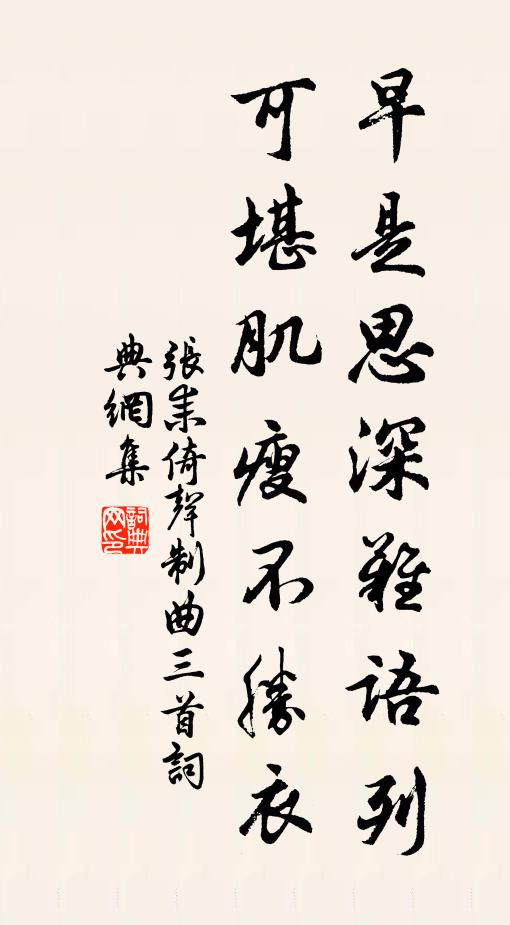 早是思深難語列
可堪肌瘦不勝衣
張耒倚聲制曲三首詞
典網集
詞典
网印